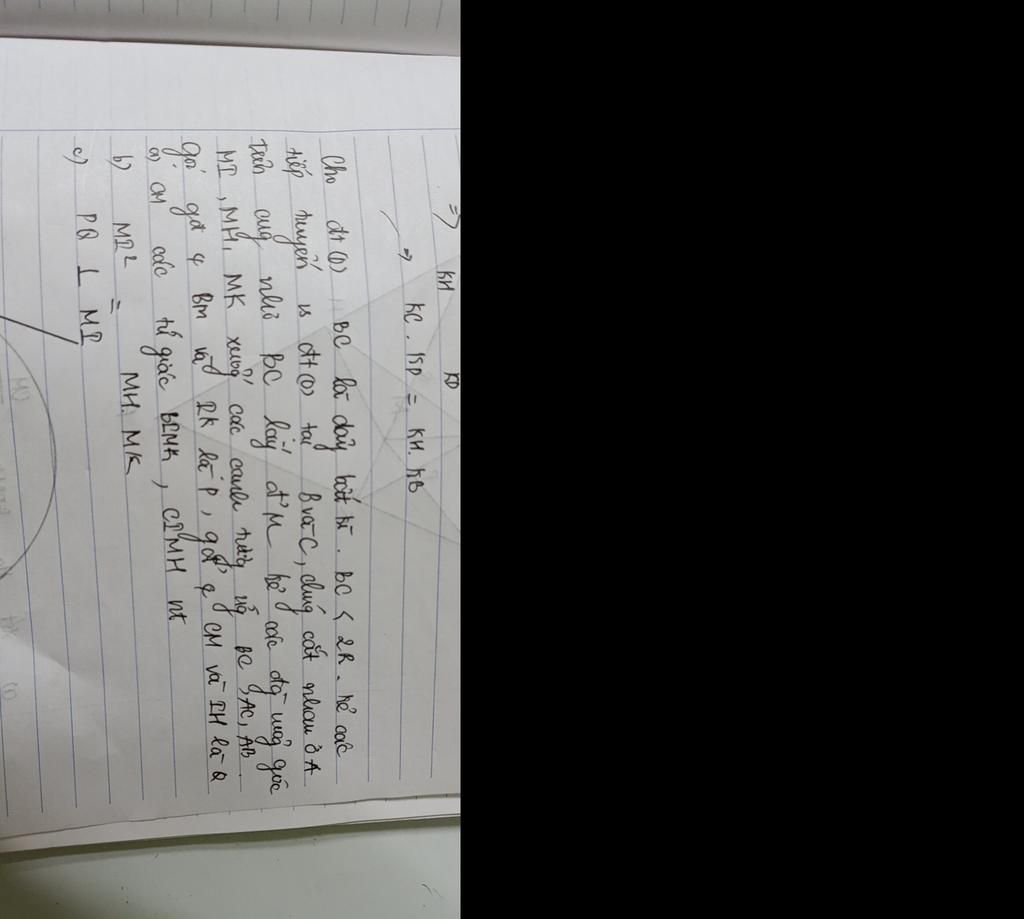 => KH KD
=> KC. KD = KH. KB
Cho đt (O) BC là dây bất kì. BC < 2R. kẻ các
tiếp tuyến vs đt (O) tại B và C, chúng cắt nhau ở A
trên cung nhỏ BC lấy đ' M kẻ các đg vuông góc
MI, MH, MK xuống các cạnh tương ứg BC, AC, AB.
Gọi gđ' of BM và IK là P, gđ' of CM và IH là Q
a) CM các tứ giác BIMK, CIMH nt
b) MI² = MH. MK
c) PQ ⊥ MI